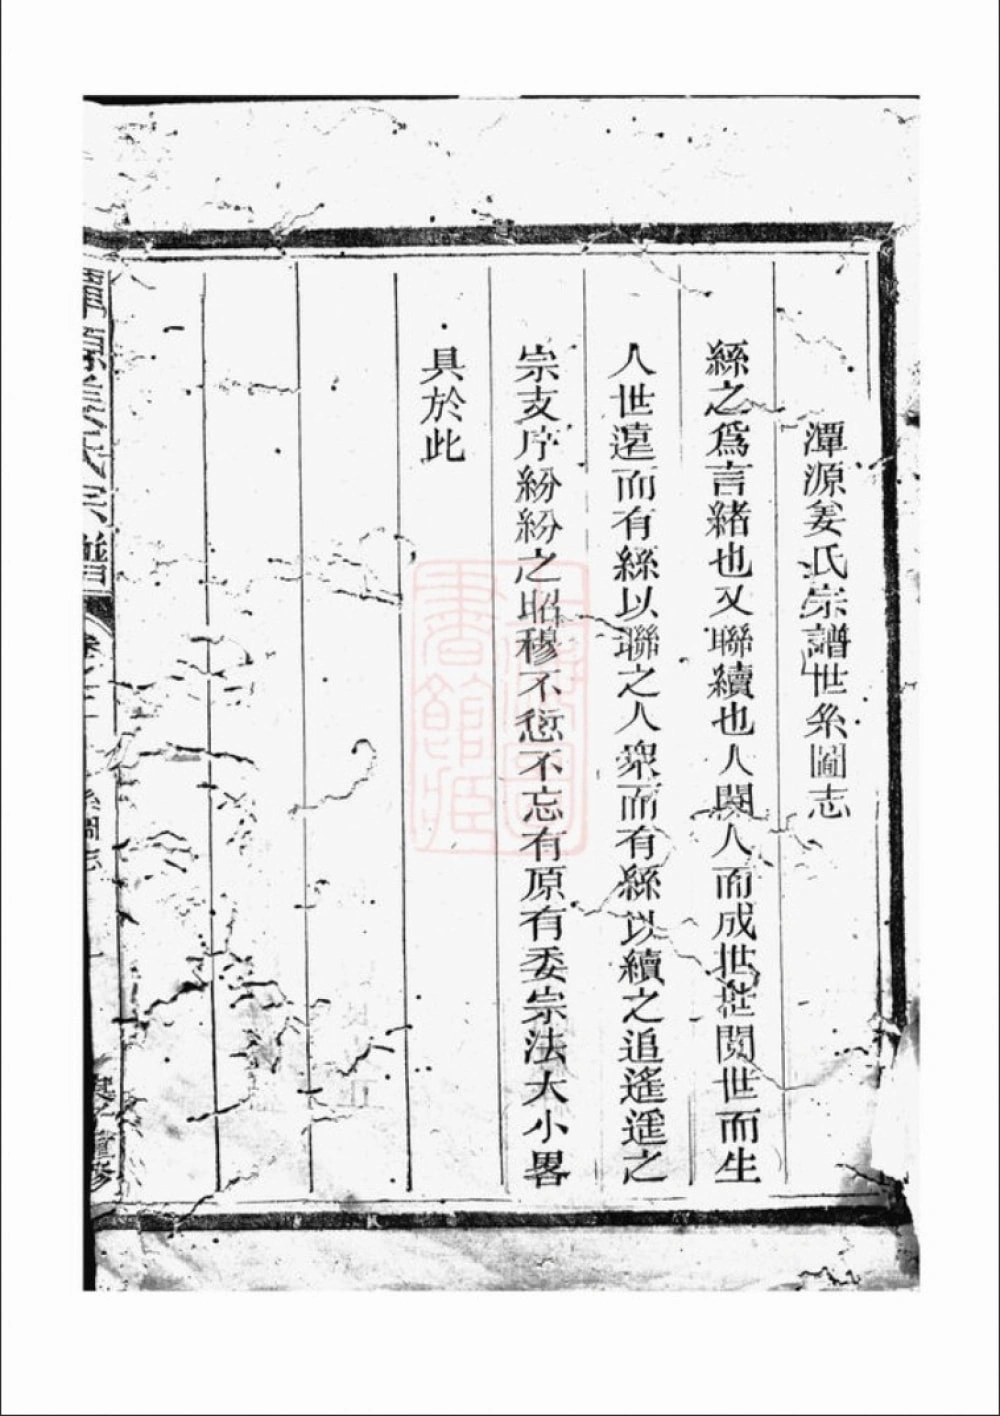 潭源姜氏宗譜世糸圖志
絲之爲言緒也又聯續也人閱人而成世世閱世而生
人世遠而有絲以聯之人衆而有絲以續之追遙遙之
宗支序紛紛之昭穆不愆不忘有原有委宗法大小畧
具於此
潭源姜氏宗譜